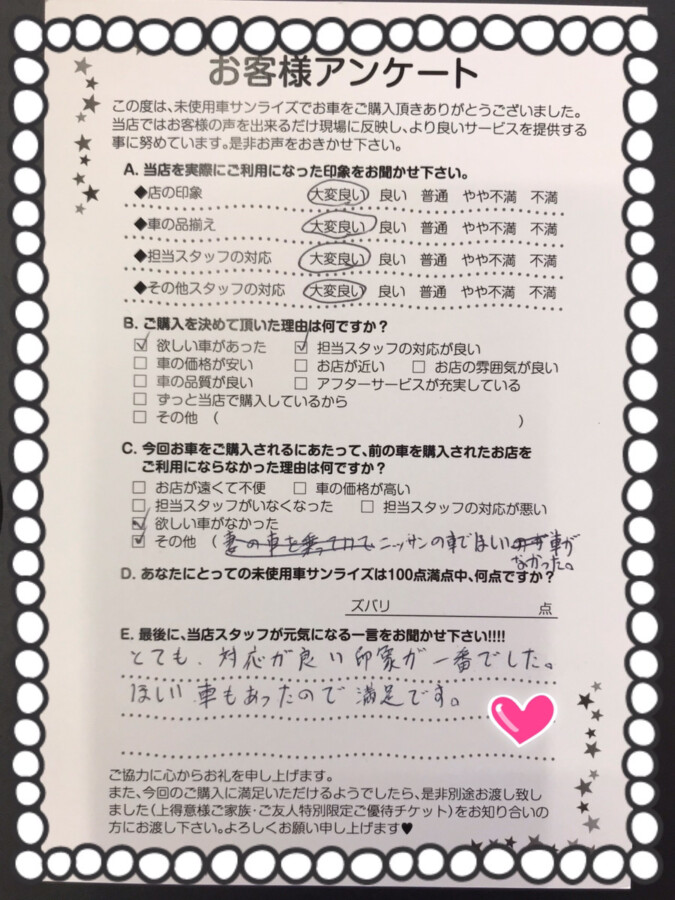 お客様アンケート
この度は、未使用車サンライズでお車をご購入頂きありがとうございました。
当店ではお客様の声を出来るだけ現場に反映し、より良いサービスを提供する
事に努めています。是非お声をおきかせ下さい。
A. 当店を実際にご利用になった印象をお聞かせ下さい。
◆店の印象 大変良い 良い 普通 やや不満 不満
◆車の品揃え 大変良い 良い 普通 やや不満 不満
◆担当スタッフの対応 大変良い 良い 普通 やや不満 不満
◆その他スタッフの対応 大変良い 良い 普通 やや不満 不満
B. ご購入を決めて頂いた理由は何ですか？
☑ 欲しい車があった ☑ 担当スタッフの対応が良い
□ 車の価格が安い □ お店が近い □ お店の雰囲気が良い
□ 車の品質が良い □ アフターサービスが充実している
□ ずっと当店で購入しているから
□ その他（ ）
C. 今回お車をご購入されるにあたって、前の車を購入されたお店を
ご利用にならなかった理由は何ですか？
□ お店が遠くて不便 □ 車の価格が高い
□ 担当スタッフがいなくなった □ 担当スタッフの対応が悪い
☑ 欲しい車がなかった
☑ その他（ ニッサンの車でほしい車が
なかった。
D. あなたにとっての未使用車サンライズは100点満点中、何点ですか？
ズバリ 点
E. 最後に、当店スタッフが元気になる一言をお聞かせ下さい!!!!
とても、対応が良い印象が一番でした。
ほしい車もあったので満足です。
ご協力に心からお礼を申し上げます。
また、今回のご購入に満足いただけるようでしたら、是非別途お渡し致し
ました（上得意様ご家族・ご友人特別限定ご優待チケット）をお知り合いの
方にお渡し下さい。よろしくお願い申し上げます♥